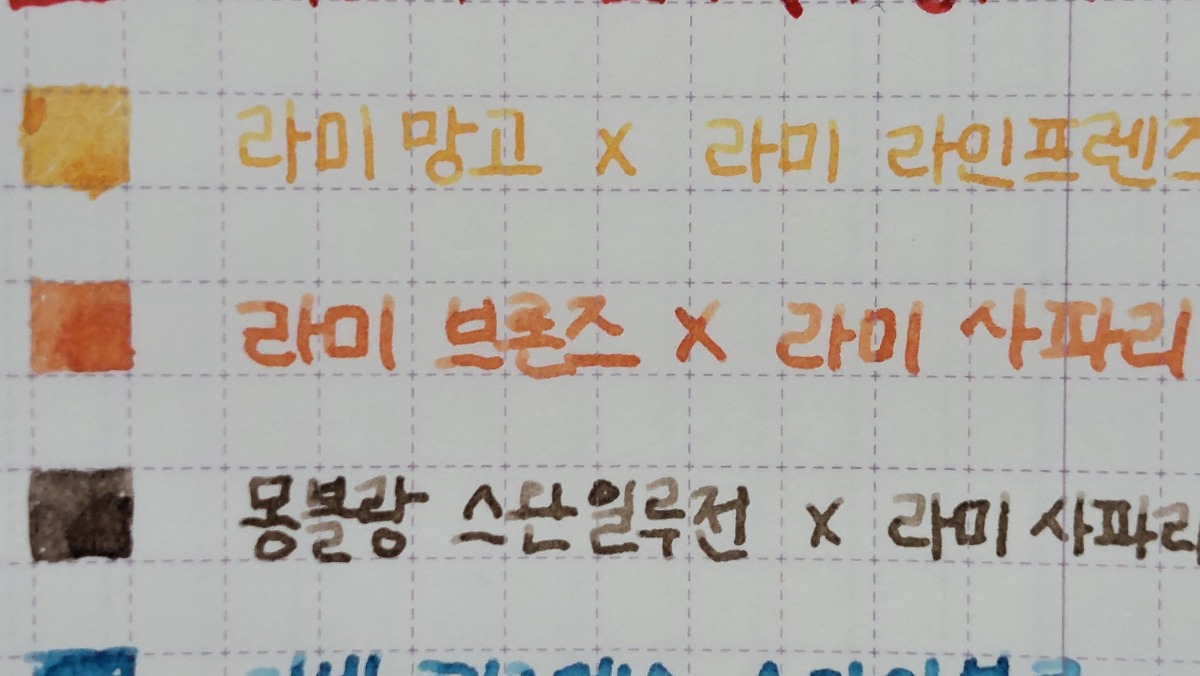 라미 망고 x 라미 라인프렌즈
라미 브론즈 x 라미 사파리
몽블랑 스완일루전 x 라미 사파리